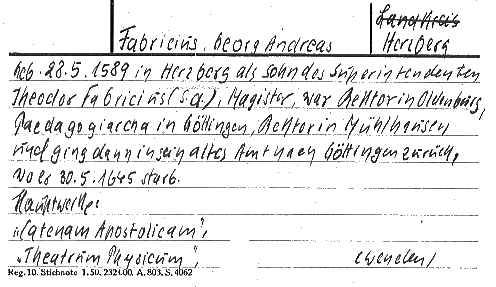 Fabricius, Georg Andreas
Landkreis
Herzberg
Geb. 28.5.1589 in Herzberg als Sohn des Superintendenten
Theodor Fabricius (s.a.), Magister, war Rektor in Oldenburg,
Paedagogiarcha in Göttingen, Rektor in Mühlhausen
und ging dann in sein altes Amt nach Göttingen zurück,
wo er 30.5.1645 starb.
Hauptwerke:
"Catenam Apostolicam",
"Theatrum Physicum",
(wenden)
Reg. 10. Stichnote 1.50. 232400. A. 803. S. 4062